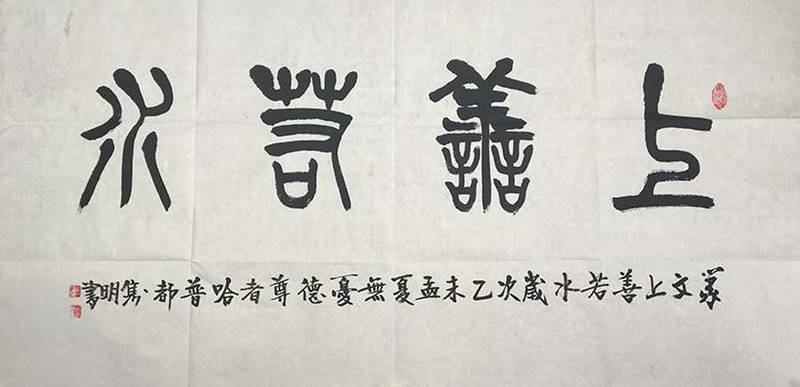 上善若水
篆文上善若水歲次乙未孟夏無憂德尊者哈普都·雋明書